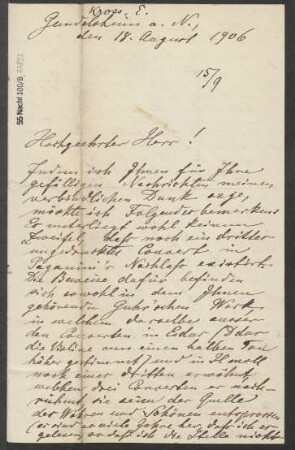 Kross, E.
Gundelsheim a. N.,
den 18. August 1906
15/9
55 Nachl 100/B
Hochgeehrter Herr!
Indem ich Ihnen für Ihre
gefälligen Nachrichten meinen
verbindlichen Dank sage,
möchte ich Folgendes bemerken:
Es unterliegt wohl keinem
Zweifel, daß noch ein drittes
ungedrucktes Concert in
Paganini's Nachlaß existirt.
Die Beweise dafür befinden
sich sowohl in dem Ihnen
gehörenden Guhr'schen Werk,
in welchem derselbe ausser
den Concerten in Esdur, Ddur
die Violine um einen halben Ton
höher gestimmt) und in Hmoll
noch eines dritten erwähnt
welchen drei Concerten er nach-
rühmt, sie seien der Quelle
des Wahren und Schönen entsprossen
(es sind so viele Jahre her, daß ich es
gelesen, daß ich die Stelle nicht